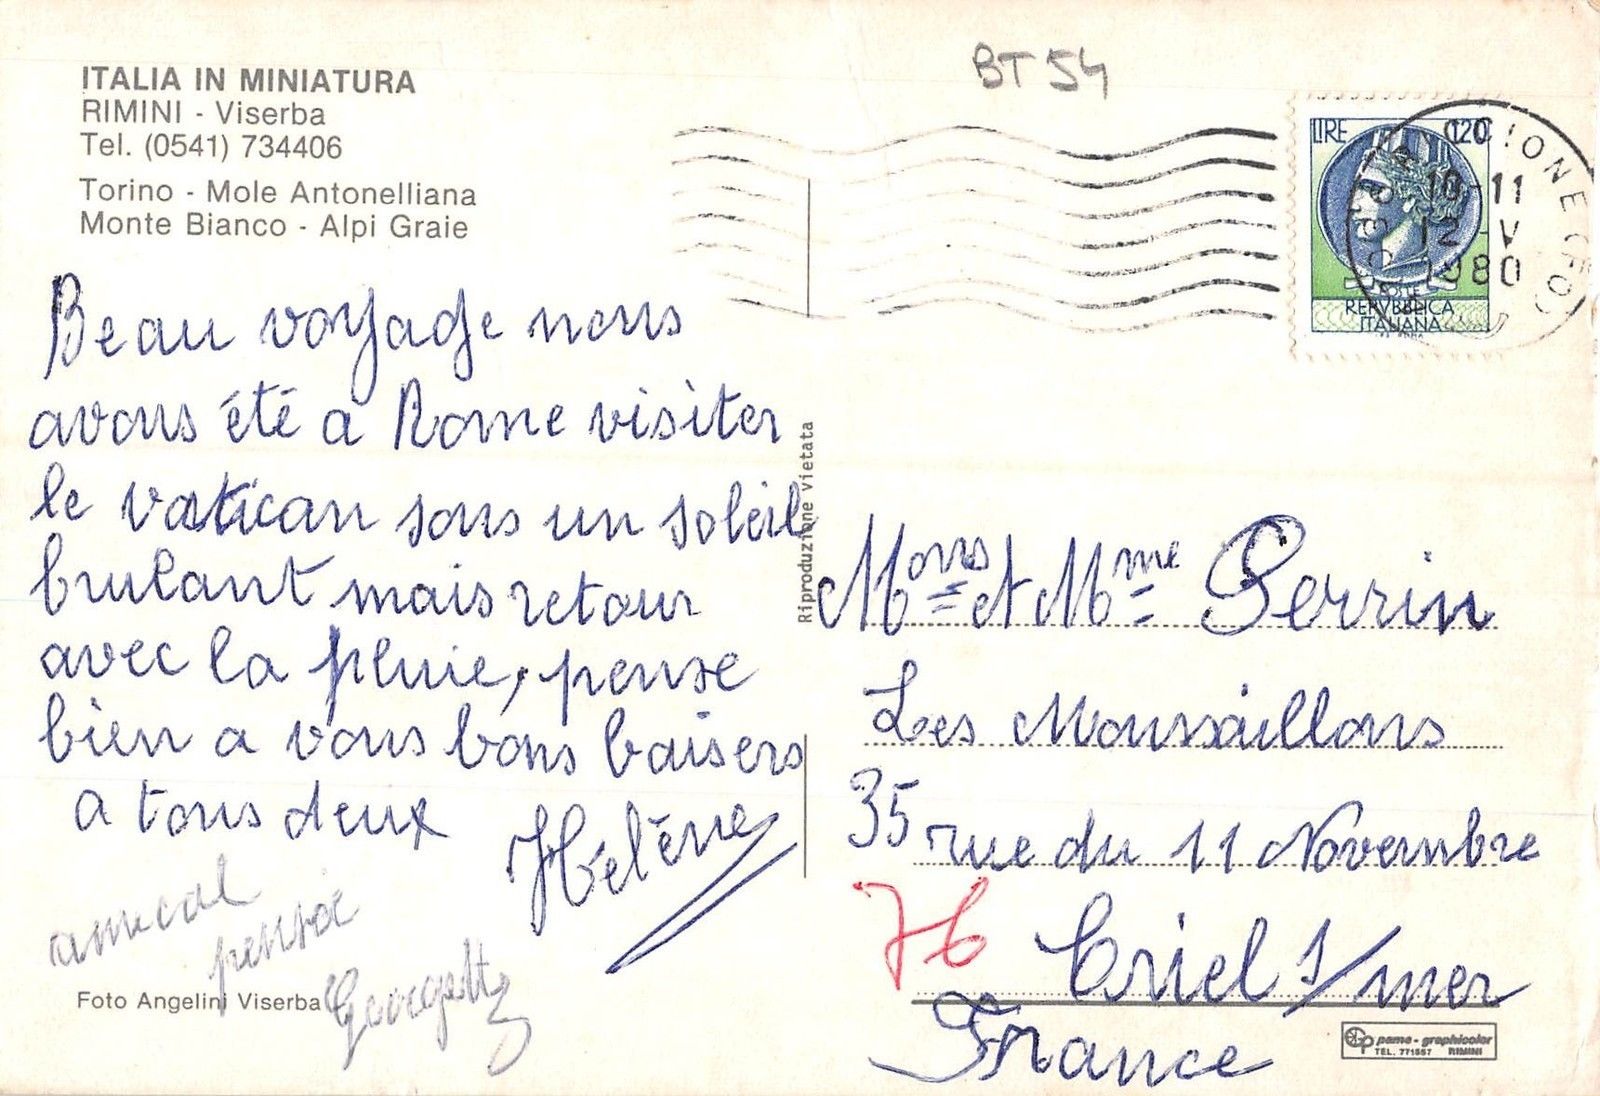 ITALIA IN MINIATURA
RIMINI - Viserba
Tel. (0541) 734406
Torino - Mole Antonelliana
Monte Bianco - Alpi Graie
BT 54
LIRE 120
POSTE
REPVBBLICA
ITALIANA
RICCIONE (FO)
10-11
2-V
1980
Beau voyage nous
avons été a Rome visiter
le vatican sous un soleil
brulant mais retour
avec la pluie, pense
bien a vous bons baisers
a tous deux
Hélène
amical
pensée
Georgette
Foto Angelini Viserba
Riproduzione Vietata
Mons et Mme Perrin
Les Moussaillons
35 rue du 11 Novembre
76 Criel s/mer
France
pama - graphicolor
TEL. 771557 RIMINI